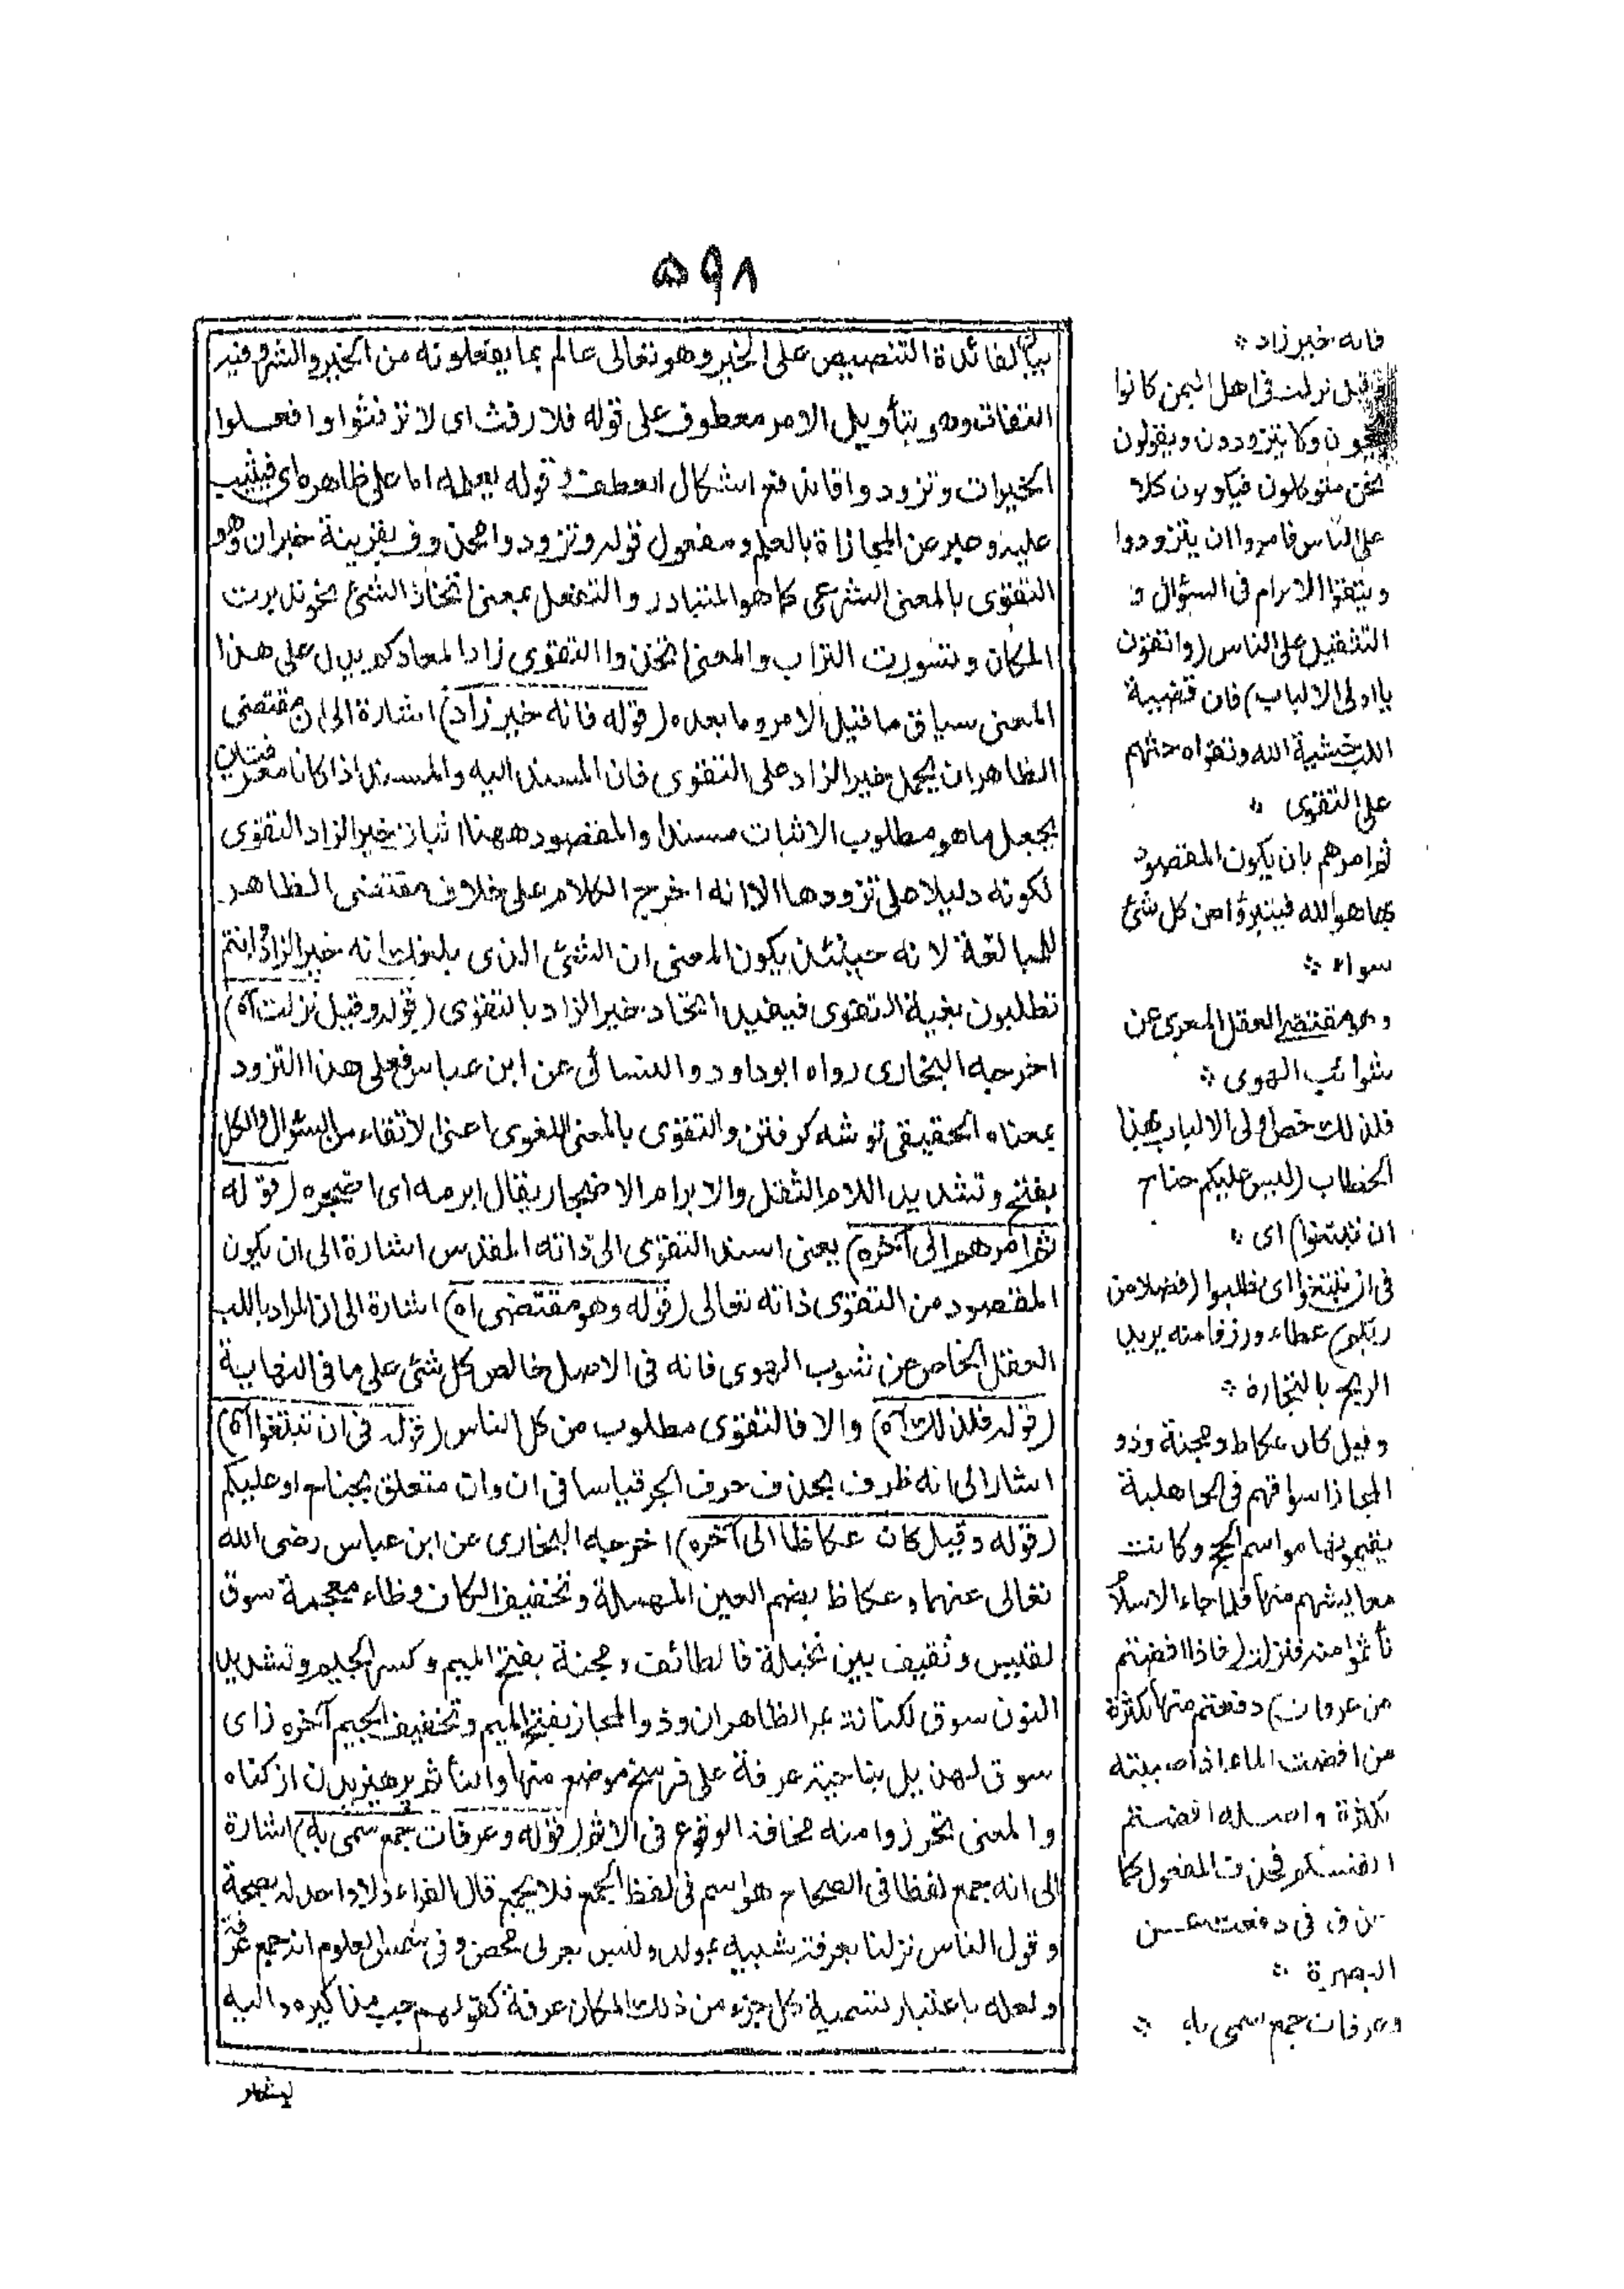 ۵۹۸
بيانا لفائدة التنصيص على الخير وهو تعالى عالم بما يفعلونه من الخير والشر وفيه
التفات وهو بتأويل الامر معطوف على قوله فلا رفث اى لا ترفثوا وافعلوا
الخيرات وتزودوا فاندفع اشكال العطف وقوله يعلمه اما على ظاهره اى فيثيب
عليه وخبر عن المجازاة بالعلم ومفعول قوله وتزودوا محذوف بقرينة خبر ان وهو
التقوى بالمعنى الشرعى كما هو المتبادر والتفعل بمعنى اتخاذ الشئ نحو تديرت
المكان وتسورت التراب والمعنى اتخذوا التقوى زاد المعادكم يدل على هذا
المعنى سياق ما قبل الامر وما بعده (قوله فانه خير زاد) اشارة الى ان مقتضى
الظاهر ان يحمل خير الزاد على التقوى فان المسند اليه والمسند اذا كانا معرفتين
يجعل ما هو مطلوب الاثبات مسندا والمقصود ههنا اثبات خير الزاد التقوى
لكونه دليلا على تزودها الا انه اخرج الكلام على خلاف مقتضى الظاهر
للمبالغة لانه حينئذ يكون المعنى ان الشئ الذى بلغك انه خير الزاد انتم
تطلبون بغية التقوى فيفيد اتحاد خير الزاد بالتقوى (قوله وقيل نزلت آه)
اخرجه البخارى رواه ابو داود والنسائى عن ابن عباس فعلى هذا التزود
بمعناه الحقيقى توشه كرفتن والتقوى بالمعنى اللغوى اعنى الاتقاء من السؤال والكل
بفتح وتشديد اللام الثقل والابرام الاضجار يقال ابرمه اى اضجره (قوله
ثم امرهم الى آخره) يعنى اسند التقوى الى ذاته المقدس اشارة الى ان يكون
المقصود من التقوى ذاته تعالى (قوله وهو مقتضى آه) اشارة الى ان المراد باللب
العقل الخاص عن شوب الهوى فانه فى الاصل خالص كل شئ على ما فى النهاية
(قوله فلذلك آه) والا فالتقوى مطلوب من كل الناس (قوله فى ان تبتغوا آه)
اشار الى انه ظرف بحذف حرف الجر قياسا فى ان وان متعلق بجناح او عليكم
(قوله وقيل كان عكاظ الى آخره) اخرجه البخارى عن ابن عباس رضى الله
تعالى عنهما وعكاظ بضم العين المهملة وتخفيف الكاف وظاء معجمة سوق
لقيس وثقيف بين نخلة فالطائف ومجنة بفتح الميم وكسر الجيم وتشديد
النون سوق لكنانة بمر الظاهران وذو المجاز بفتح الميم وتخفيف الجيم آخره زاى
سوق لهذيل بناحية عرفة على فرسخ موضع منها والتأثم پرهيزيدن از كناه
والمعنى تحرزوا منه مخافة الوقوع فى الاثم (قوله وعرفات جمع سمى به) اشارة
الى انه جمع لفظا فى الصحاح هو اسم فى لفظ الجمع فلا يجمع قال الفراء ولا واحد له بصحة
وقول الناس نزلنا بعرفة شبيه بمولد وليس بعربى محض وفى شمس العلوم انه جمع عرفة
ولعله باعتبار تسمية كل جزء من ذلك المكان عرفة كقولهم جب مذاكيره واليه
يشعر
فانه خير زاد
وقيل نزلت فى اهل اليمن كانوا
يحجون ولا يتزودون ويقولون
نحن متوكلون فيكونون كلا
على الناس فامروا ان يتزودوا
ويتقوا الابرام فى السؤال و
التثقيل على الناس (واتقون
يا اولى الالباب) فان قضية
اللب خشية الله وتقواه حثهم
على التقوى
ثم امرهم بان يكون المقصود
بها هو الله فيتبرؤا من كل شئ
سواه
وهو مقتضى العقل المعرى عن
شوائب الهوى
فلذلك خص اولى الالباب بهذا
الخطاب (ليس عليكم جناح
ان تبتغوا) اى
فى ان تبتغوا اى تطلبوا (فضلا من
ربكم) عطاء ورزقا منه يريد
الربح بالتجارة
وقيل كان عكاظ ومجنة وذو
المجاز اسواقهم فى الجاهلية
يقيمونها مواسم الحج وكانت
معايشهم منها فلما جاء الاسلام
تأثموا منه فنزلت (فاذا افضتم
من عرفات) دفعتم منها بكثرة
من افضت الماء اذا صببته
بكثرة واصله افضتم
انفسكم فحذف المفعول كما
حذف فى دفعت من
البصرة
وعرفات جمع سمى به